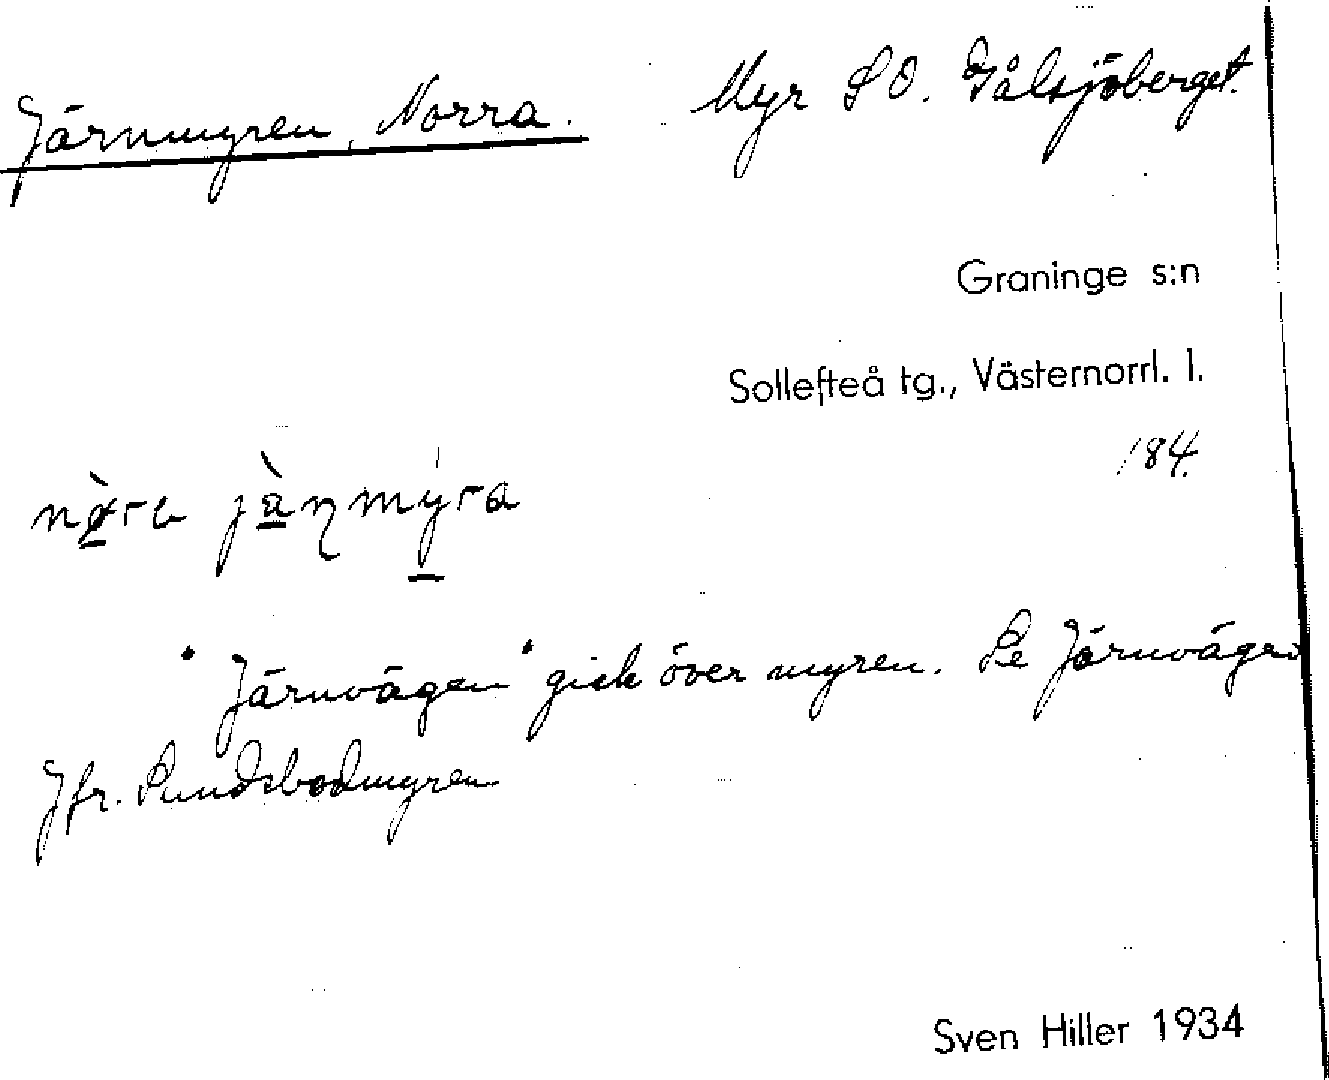 Järnmyren, Norra. Myr S O. Gålsjöberget.
Graninge s:n
Sollefteå tg., Västernorrl. l.
184.
nòra jàɳmýra
"Järnvägen" gick över myren. Se Järnvägen
Jfr. Sundsbodmyren
Sven Hiller 1934